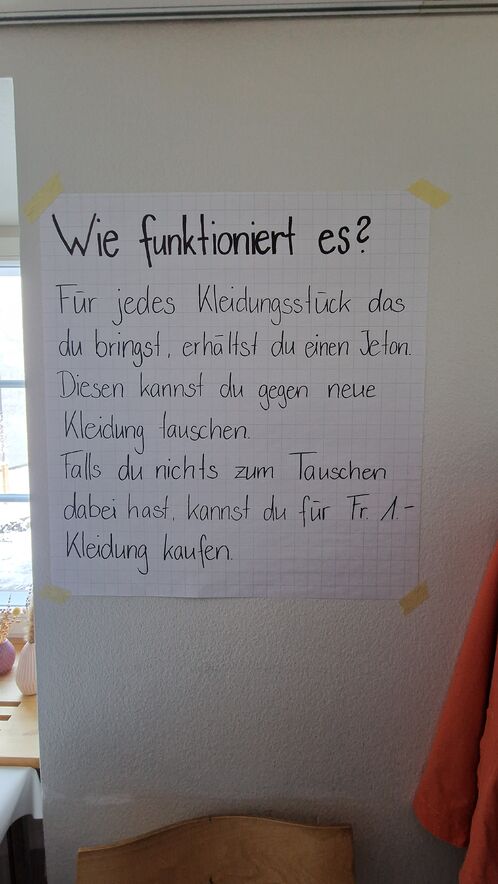 Wie funktioniert es?
Für jedes Kleidungsstück das
du bringst, erhältst du einen Jeton.
Diesen kannst du gegen neue
Kleidung tauschen.
Falls du nichts zum Tauschen
dabei hast, kannst du für Fr. 1.-
Kleidung kaufen.